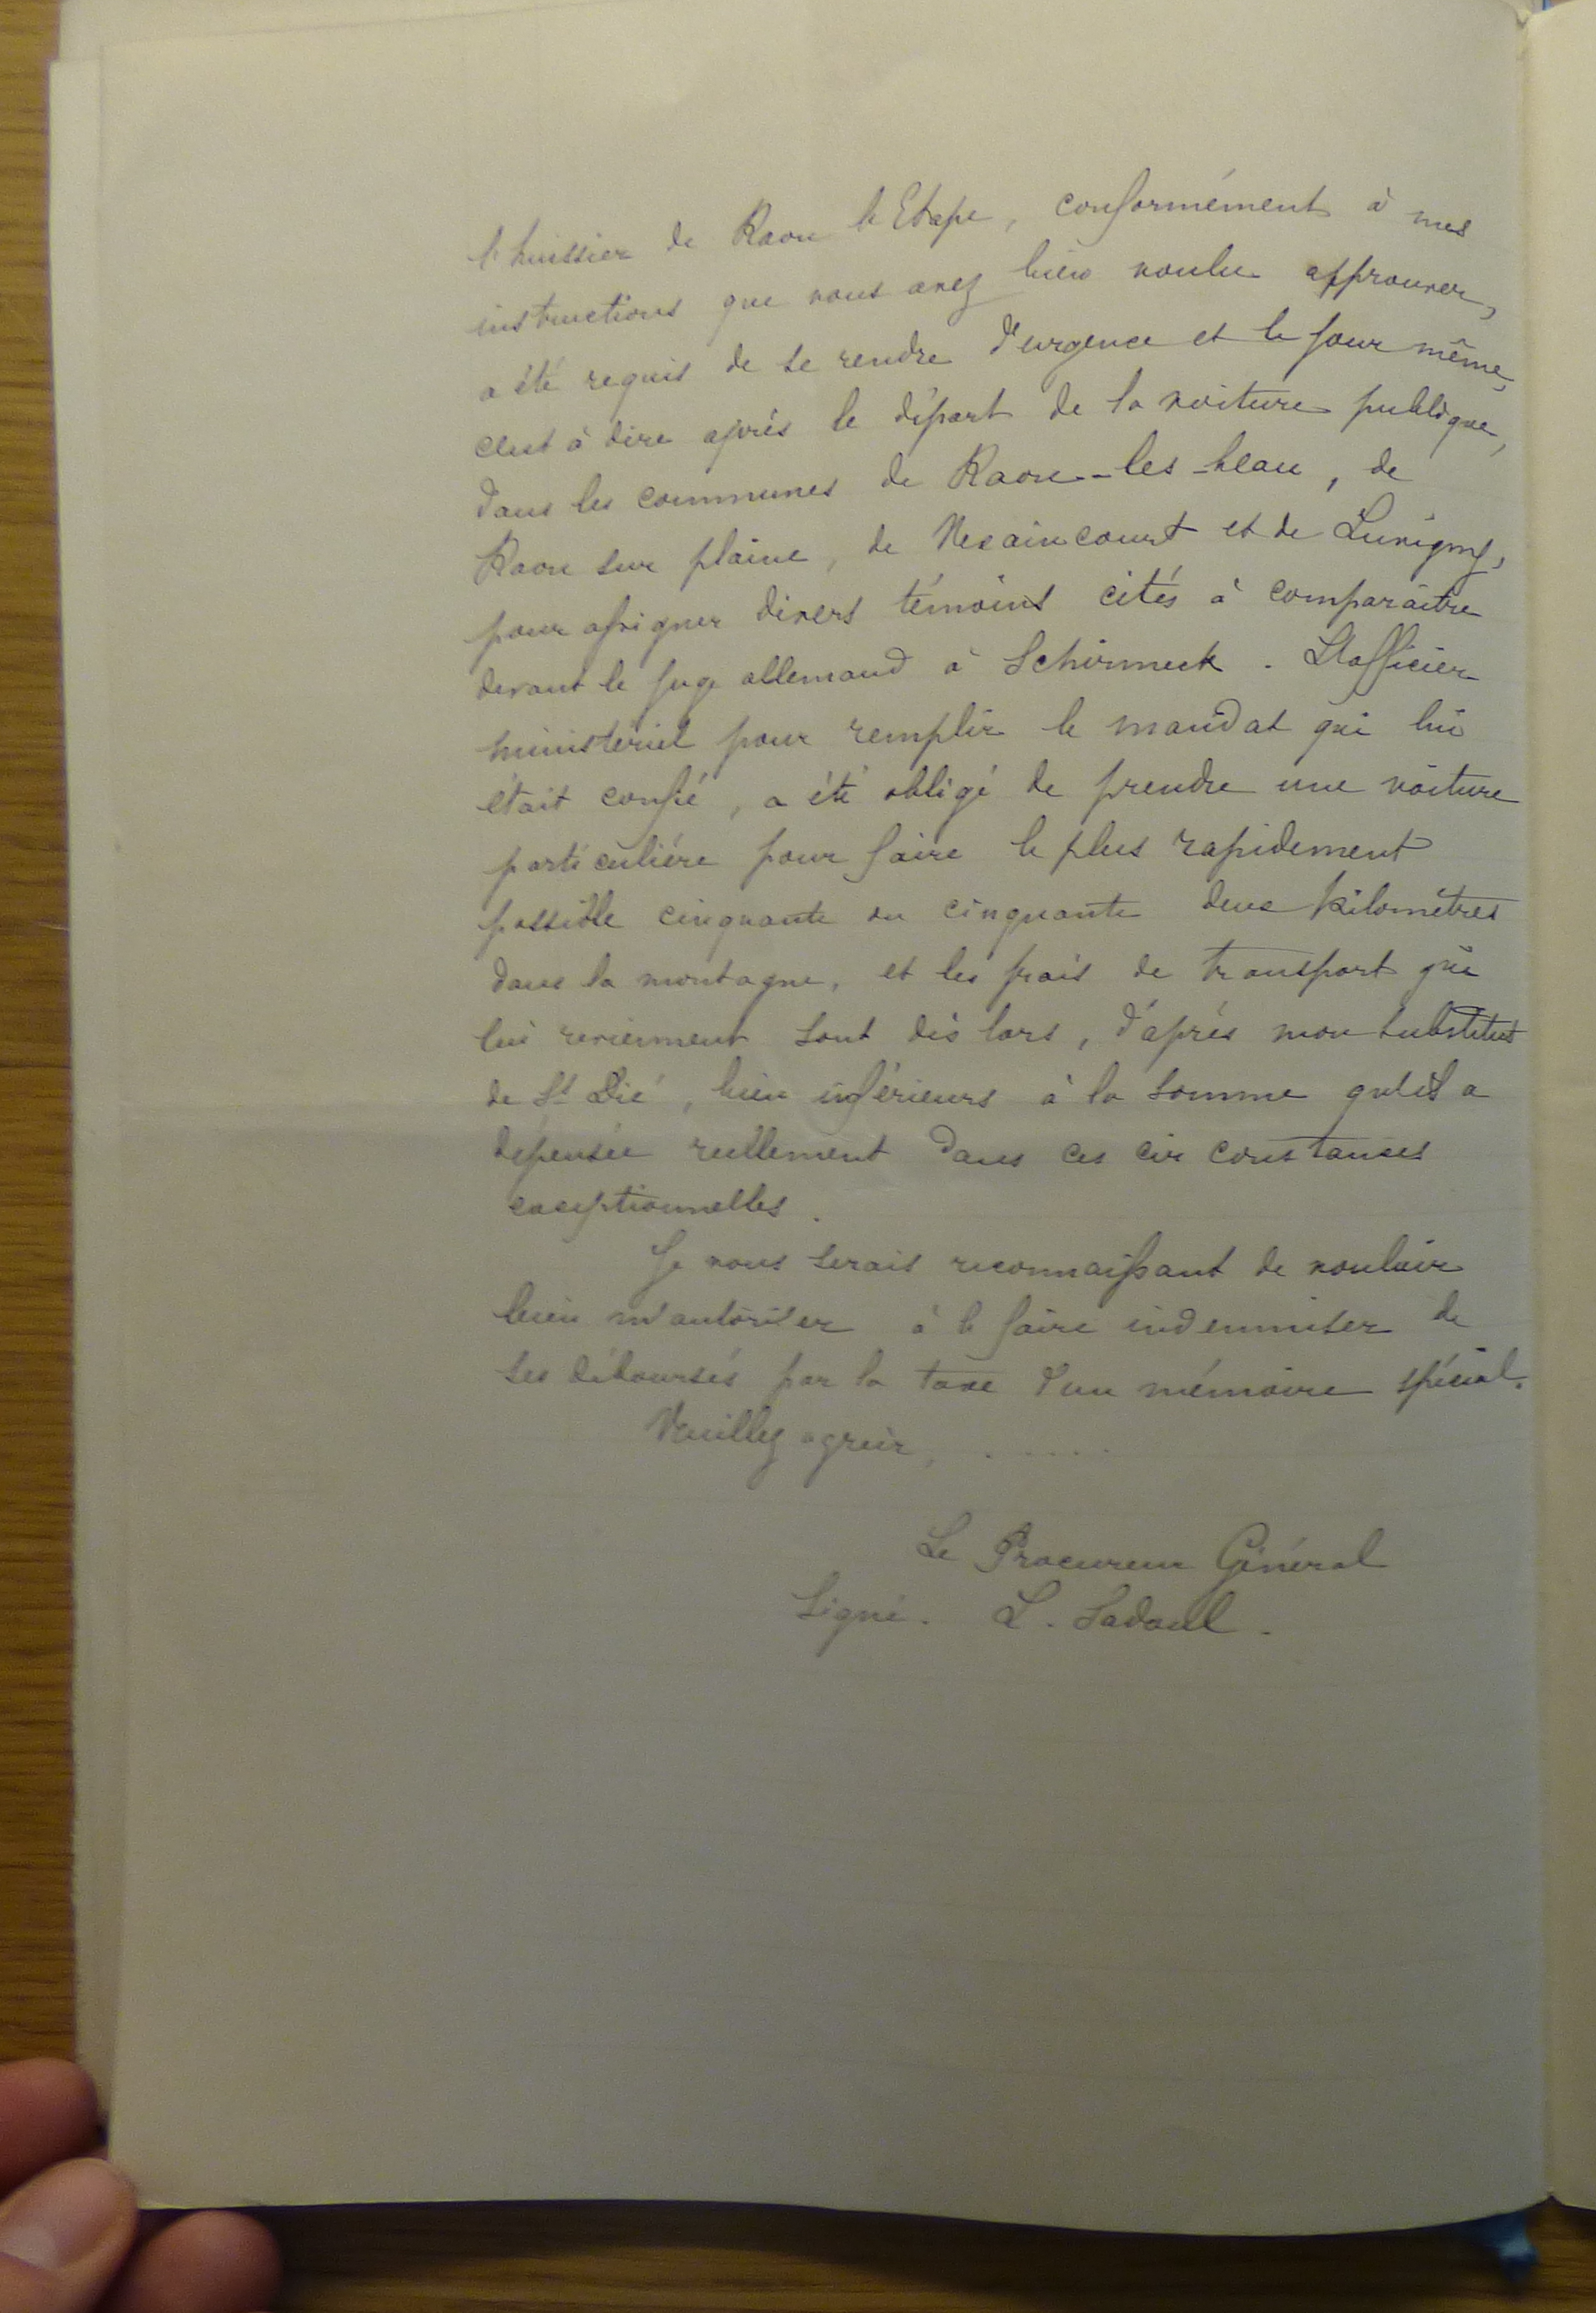 l'huissier de Raon l'Etape, conformément à mes
instructions que vous avez bien voulu approuver,
a été requis de se rendre d'urgence et le jour même,
c'est à dire après le départ de la voiture publique,
dans les communes de Raon-les-leau, de
Raon sur plaine, de Vexaincourt et de Luvigny,
pour assigner divers témoins cités à comparaître
devant le juge allemand à Schirmeck. L'officier
ministériel pour remplir le mandat qui lui
était confié, a été obligé de prendre une voiture
particulière pour faire le plus rapidement
possible cinquante ou cinquante deux kilomètres
dans la montagne, et les frais de transport qui
lui reviennent sont dès lors, d'après mon substitut
de St Dié, bien inférieurs à la somme qu'il a
dépensée réellement dans ces circonstances
exceptionnelles.
Je vous serais reconnaissant de vouloir
bien m'autoriser à le faire indemniser de
ses déboursés par la taxe d'un mémoire spécial.
Veuillez agréer, . . . . .
Le Procureur Général
Signé. L. Sadoul.